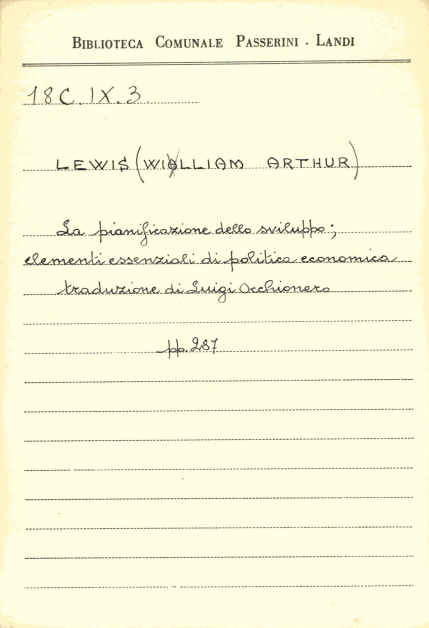 BIBLIOTECA COMUNALE PASSERINI - LANDI
18C.IX.3.
LEWIS (WILLIAM ARTHUR)
La pianificazione dello sviluppo;
elementi essenziali di politica economica
traduzione di Luigi Occhionero
pp. 287